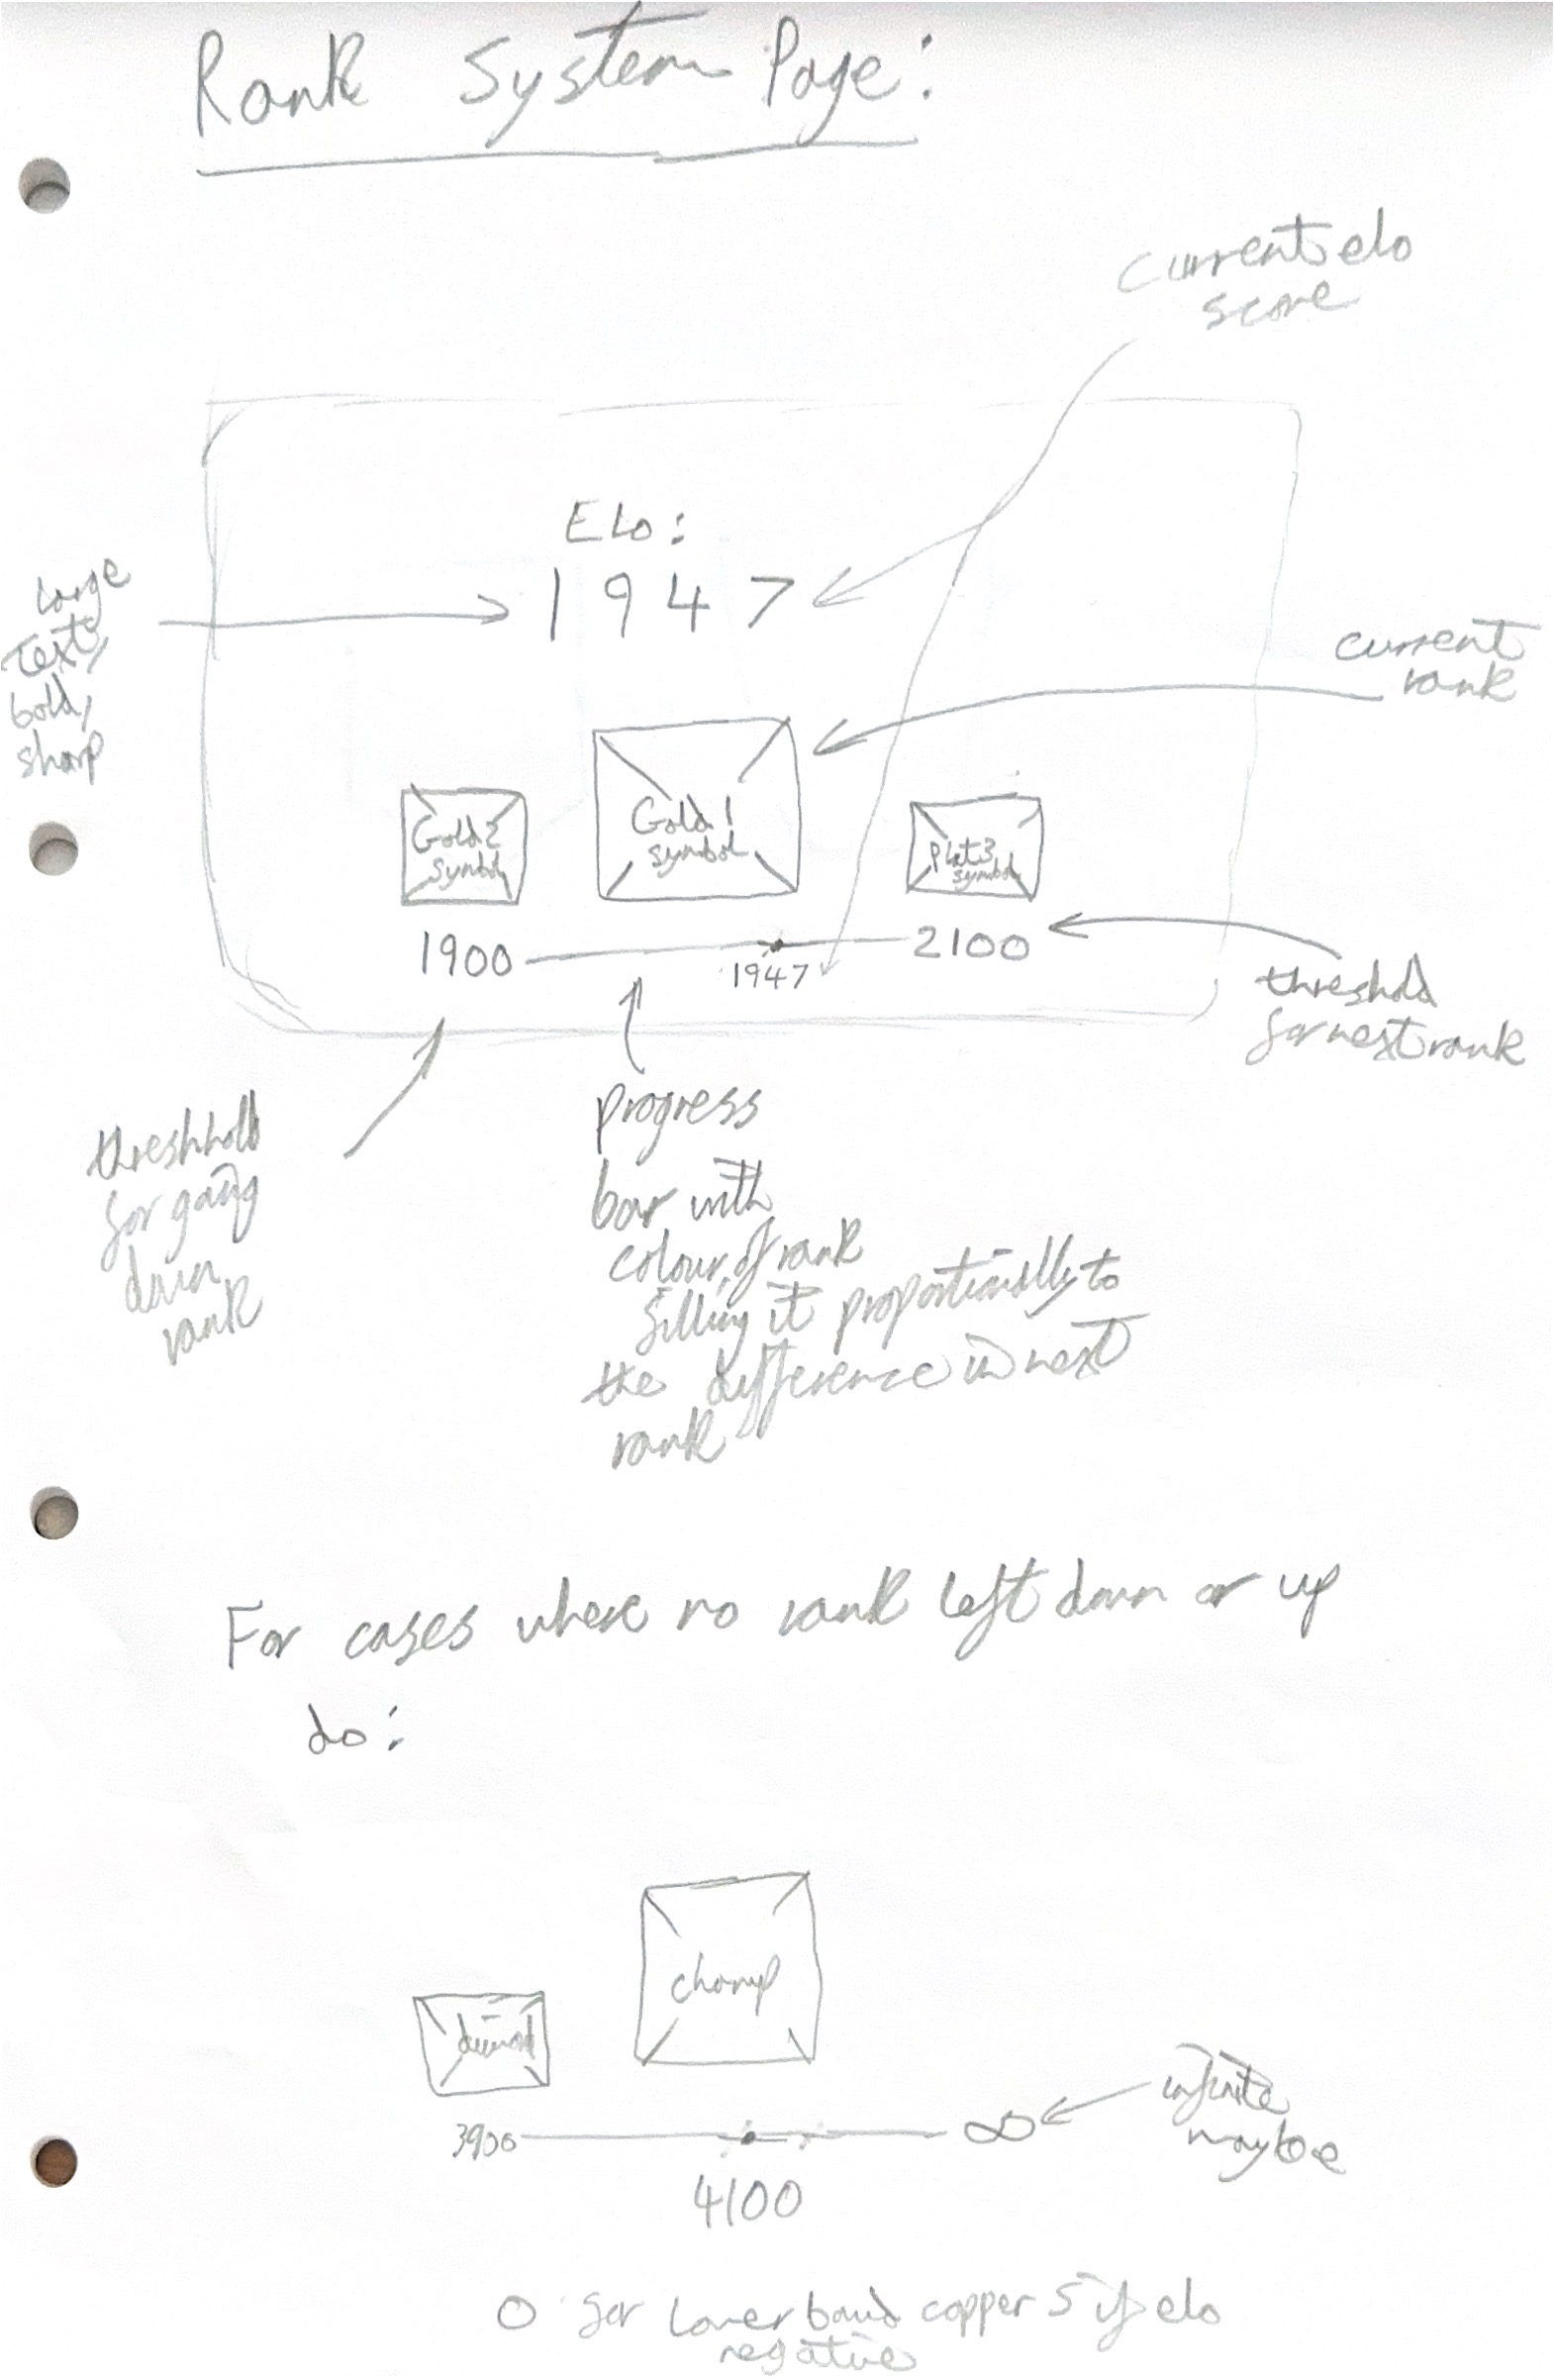 Rank System Page:
current elo
score
Elo:
1947
large
text,
bold,
sharp
current
rank
Gold 2
symbol
Gold 1
symbol
plat 3
symbol
1900
1947
2100
threshold
for next rank
threshhold
for going
down
rank
progress
bar with
colour of rank
filling it proportionally to
the difference in next
rank
For cases where no rank left down or up
do:
champ
3900
∞
infinite
maybe
4100
0 for lower bound copper 5 if elo
negative